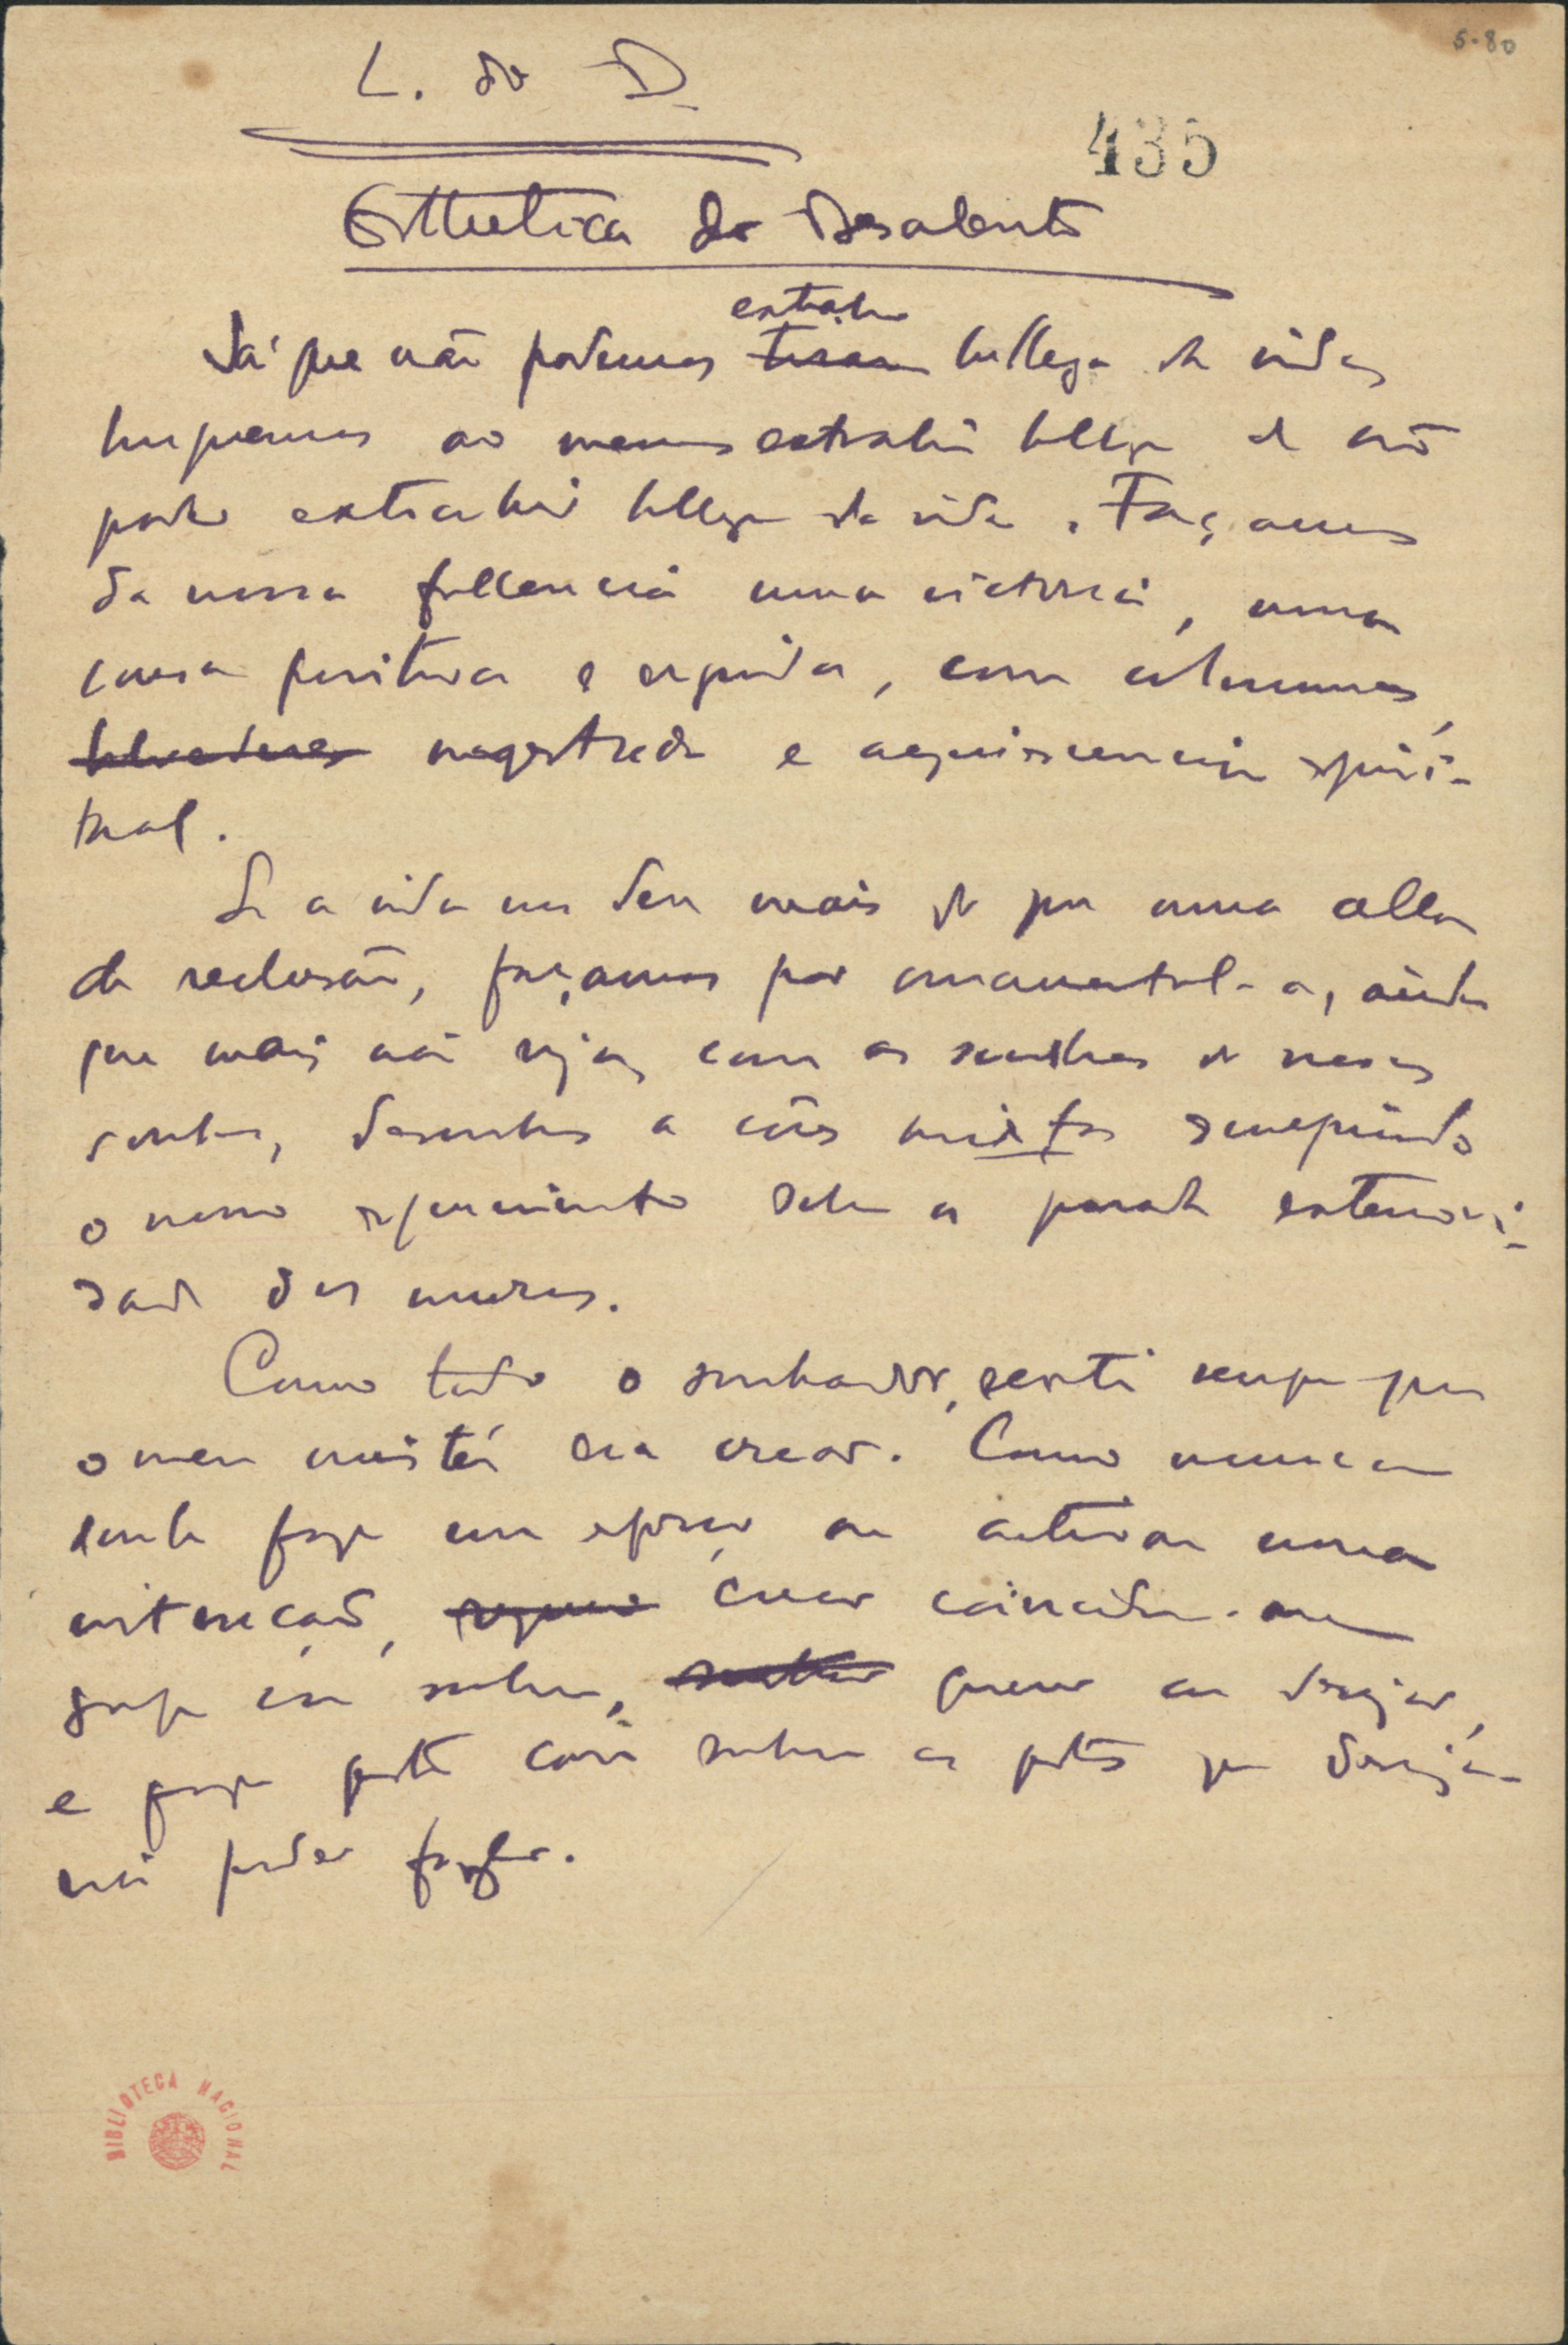 5-80
L. do D.
435
Esthetica do Desalento
extrahir
Já que não podemos tirar belleza da vida,
busquemos ao menos extrahir belleza de não
poder extrahir belleza da vida. Façamos
da nossa fallencia uma victoria, uma
cousa positiva e erguida, com columnas,
magestade e acquiescencia espiri-
tual.
Se a vida nos deu mais do que uma cella
de reclusão, façamos por ornamental-a, ainda
que mais não seja, com as sombras de nossos
sonhos, desenhos a côres mixtas esculpindo
o nosso esquecimento sobre a parada exteriori-
dade dos muros.
Como todo o sonhador, senti sempre que
o meu mistér era crear. Como nunca
soube fazer um esforço ou activar uma
intenção, crear coincidiu-me
sempre com sonhar, querer ou desejar,
e fazer gestos com sonhar os gestos que desejaria
poder fazer.
BIBLIOTECA NACIONAL